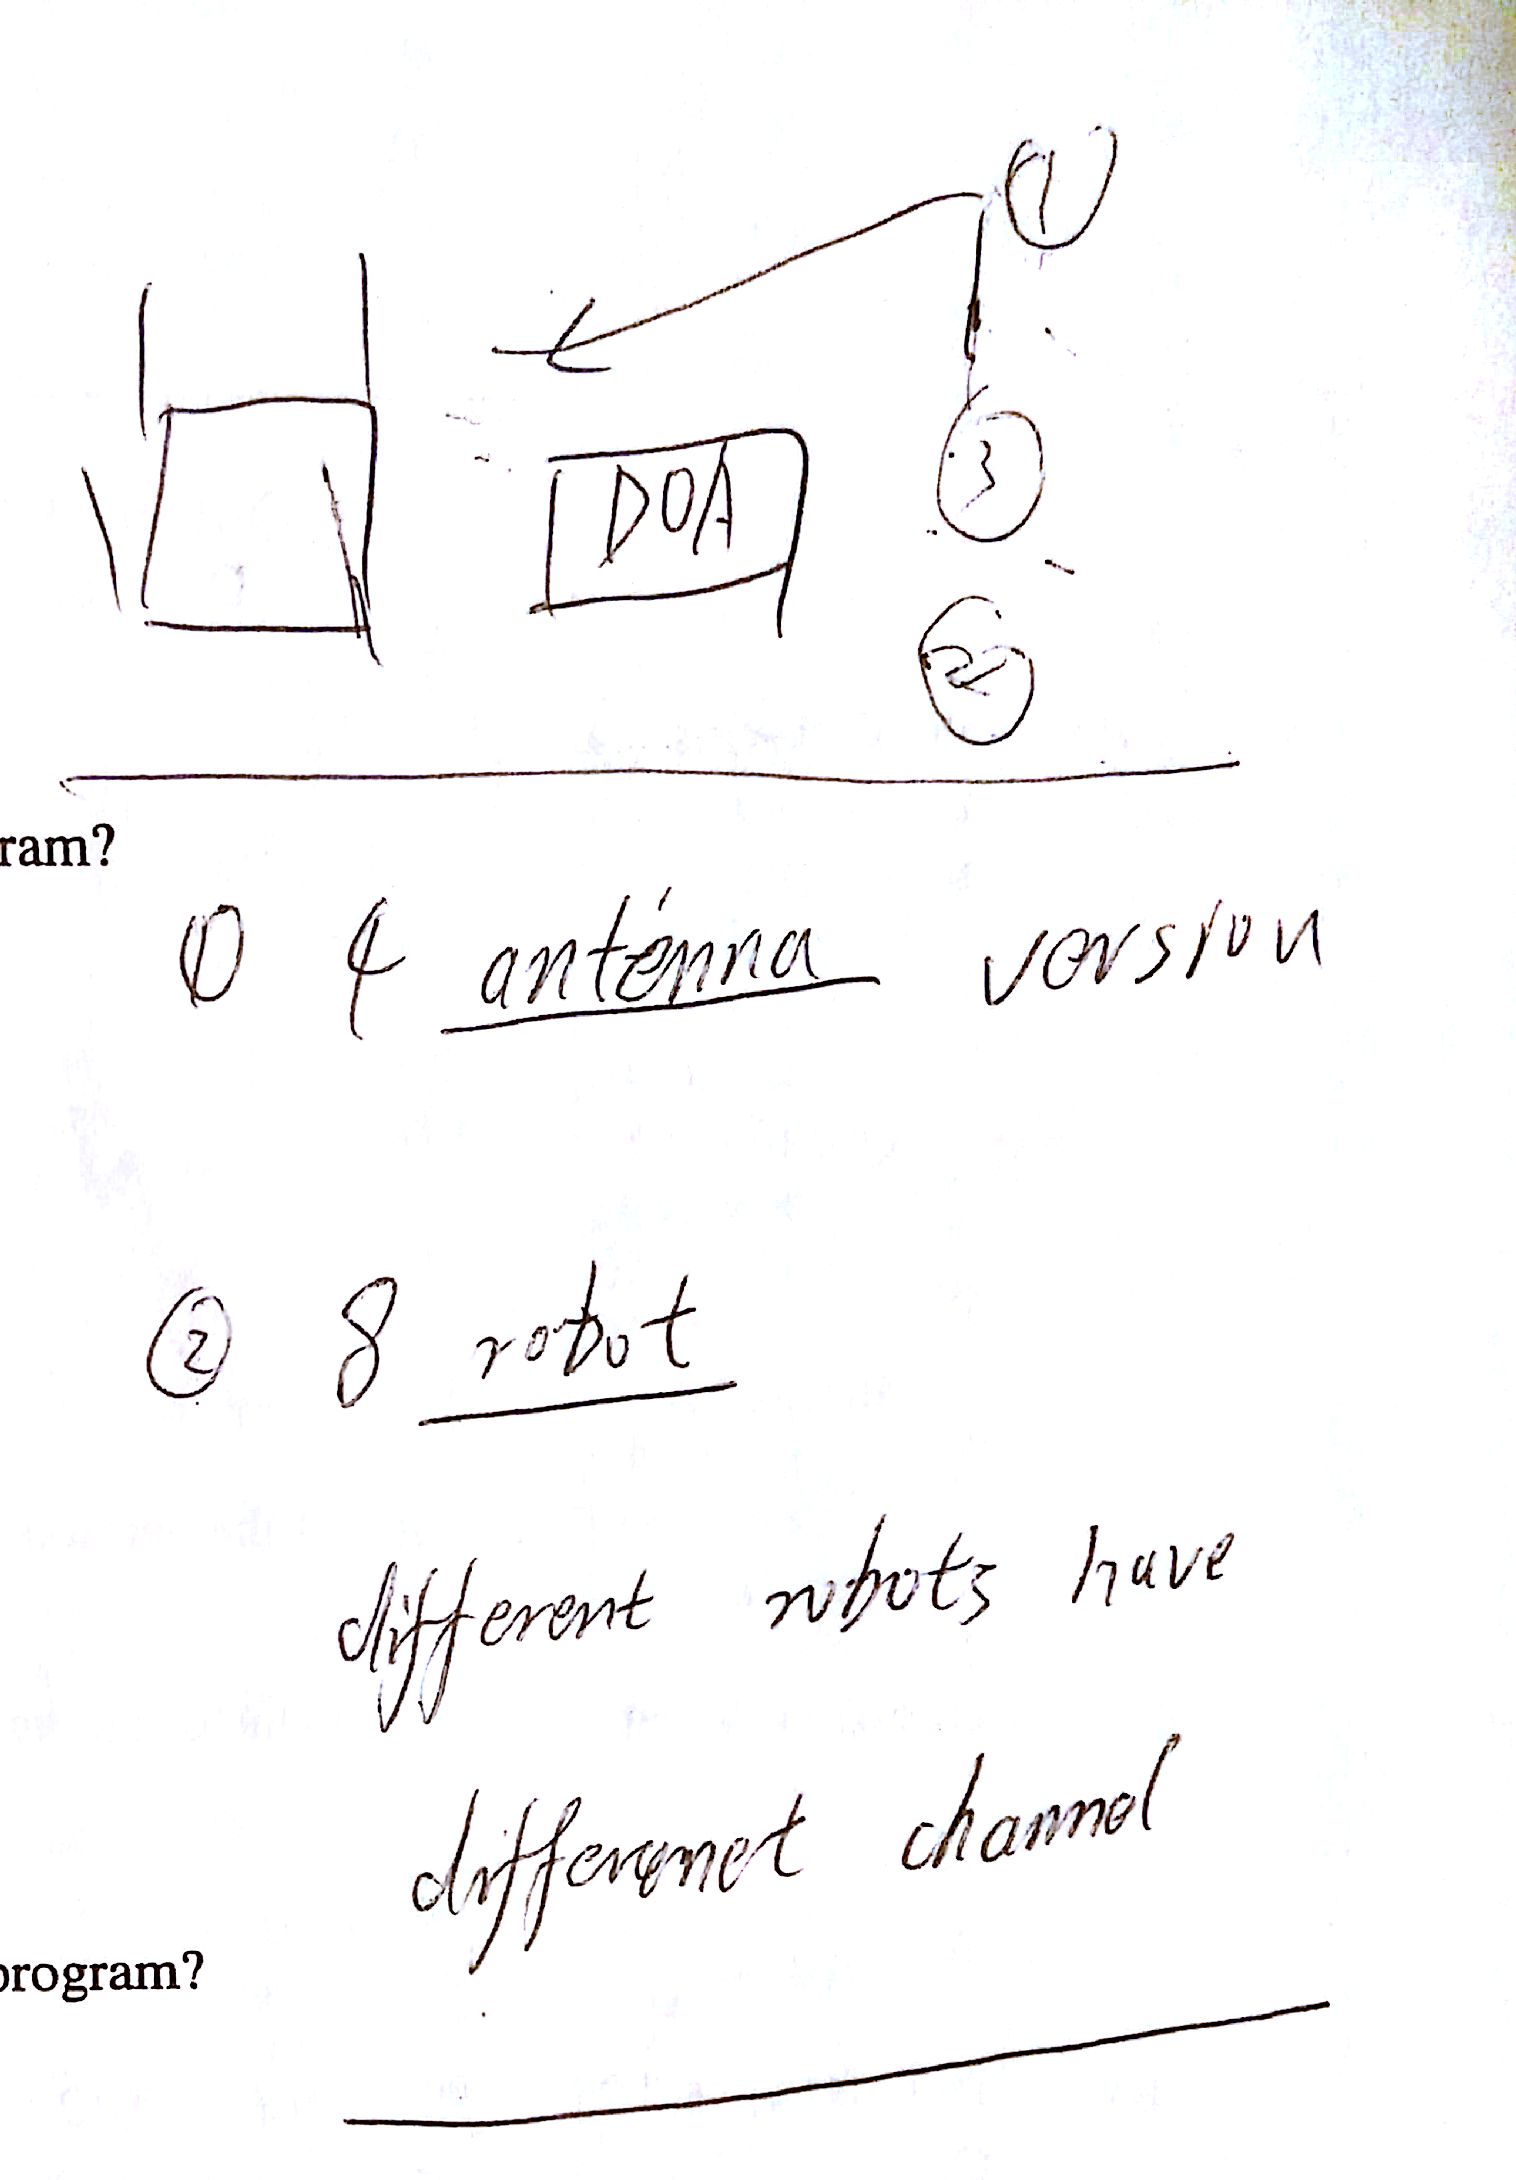 ①
DOA
③
②
ram?
① 4 antenna version
② 8 robot
different robots have
differenet channel
program?